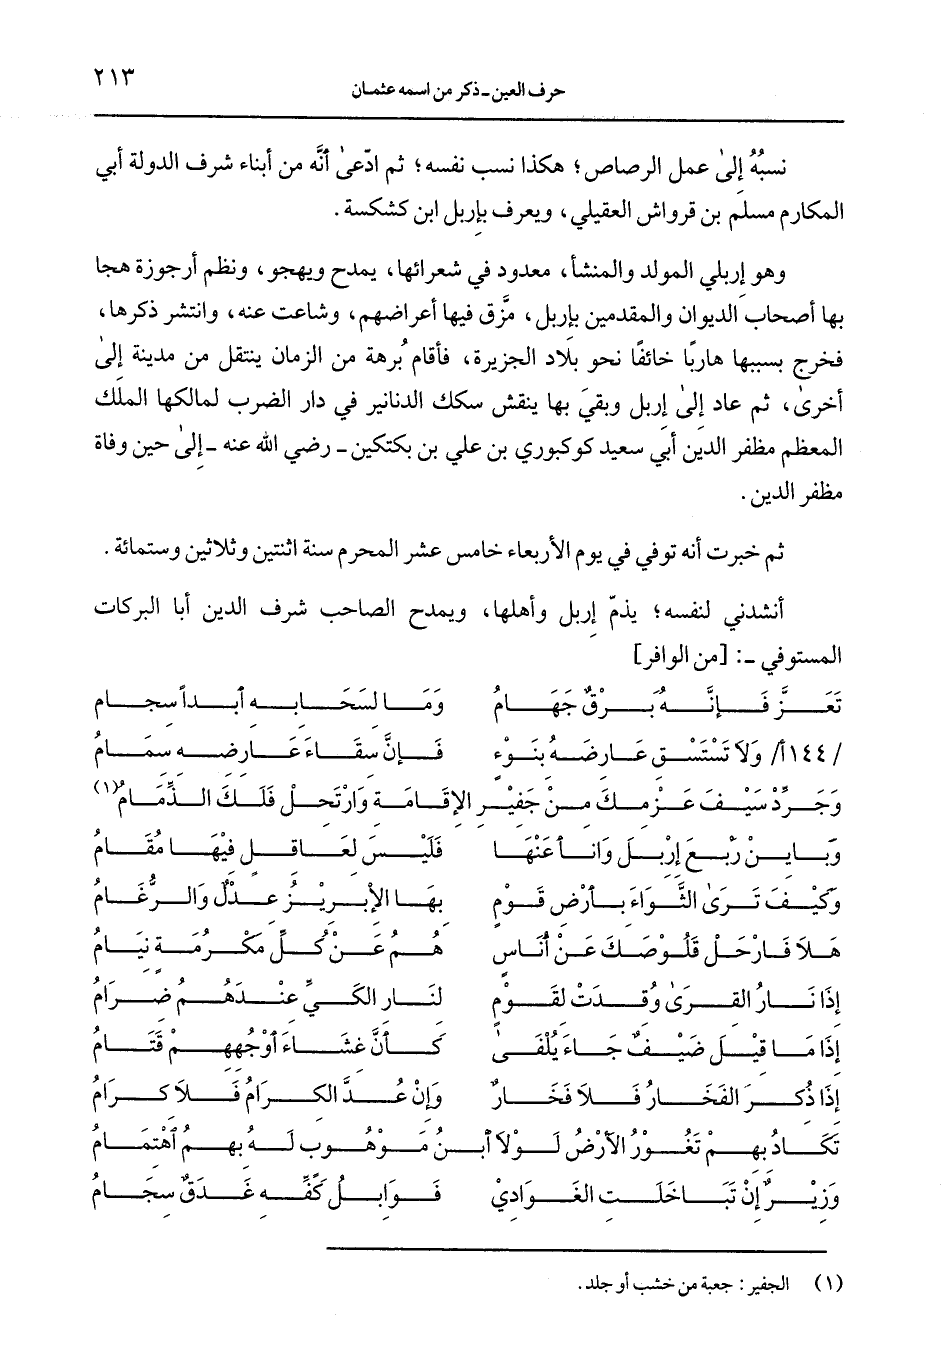 ٢١٣
حرف العين ـ ذكر من اسمه عثمان
نسبُهُ إلىٰ عمل الرصاص؛ هكذا نسب نفسه؛ ثم ادّعىٰ أنَّه من أبناء شرف الدولة أبي
المكارم مسلم بن قرواش العقيلي، ويعرف بإربل ابن كشكسة.
وهو إربلي المولد والمنشأ، معدود في شعرائها، يمدح ويهجو، ونظم أرجوزة هجا
بها أصحاب الديوان والمقدمين بإربل، مزَّق فيها أعراضهم، وشاعت عنه، وانتشر ذكرها،
فخرج بسببها هاربًا خائفًا نحو بلاد الجزيرة، فأقام بُرهة من الزمان ينتقل من مدينة إلىٰ
أخرىٰ، ثم عاد إلىٰ إربل وبقيَ بها ينقش سكك الدنانير في دار الضرب لمالكها الملك
المعظم مظفر الدين أبي سعيد كوكبوري بن علي بن بكتكين ـ رضي الله عنه ـ إلىٰ حين وفاة
مظفر الدين.
ثم خبرت أنه توفي في يوم الأربعاء خامس عشر المحرم سنة اثنتين وثلاثين وستمائة.
أنشدني لنفسه؛ يذمّ إربل وأهلها، ويمدح الصاحب شرف الدين أبا البركات
المستوفي ـ: [من الوافر]
تَعَزَّ فَإِنَّهُ بَرْقٌ جَهَامُ وَمَا لسَحَابِهِ أبداً سِجامُ
/١٤٤أ/ وَلاَ تَسْتَسْقِ عَارِضَهُ بنَوْءٍ فَإِنَّ سِقَاءَ عَارِضِهِ سِمَامُ
وَجَرِّدْ سَيْفَ عَزْمِكَ مِنْ جَفِيْرِ الإقَامَةِ وَارْتَحِلْ فَلَكَ الذِّمَامُ(١)
وَبَايِنْ رَبْعَ إِرْبِلَ وَانأَ عَنْهَا فَلَيْسَ لعَاقِلٍ فِيْهَا مُقَامُ
وَكَيْفَ تَرَىٰ الثَّوَاءَ بِأَرْضِ قَوْمٍ بِهَا الإبْرِيْزُ عِدْلٌ وَالرُّغَامُ
هَلاَ فَارْحَلْ قَلُوْصَكَ عَنْ أُنَاسٍ هُمُ عَنْ كُلِّ مَكْرُمَةٍ نِيَامُ
إذَا نَارُ القِرَىٰ وُقِدَتْ لقَوْمٍ لنَارِ الكَيِّ عِنْدَهُمُ ضِرَامُ
إذَا مَا قِيْلَ ضَيْفٌ جَاءَ يُلْفَىٰ كَأَنَّ غِشَاءَ أَوْجُهِهِمْ قَتَامُ
إذَا ذُكِرَ الفَخَارُ فَلاَ فَخَارٌ وَإِنْ عُدَّ الكِرَامُ فَلاَ كِرَامُ
تَكَادُ بِهِمْ تَغُوْرُ الأَرْضُ لَوْلاَ ابْنُ مَوْهُوبٍ لَهُ بِهِمُ اهْتِمَامُ
وَزِيْرٌ إِنْ تَبَاخَلَتِ الغَوَادِيْ فَوَابِلُ كَفِّهِ غَدَقٌ سِجَامُ
(١) الجفير: جعبة من خشب أو جلد.